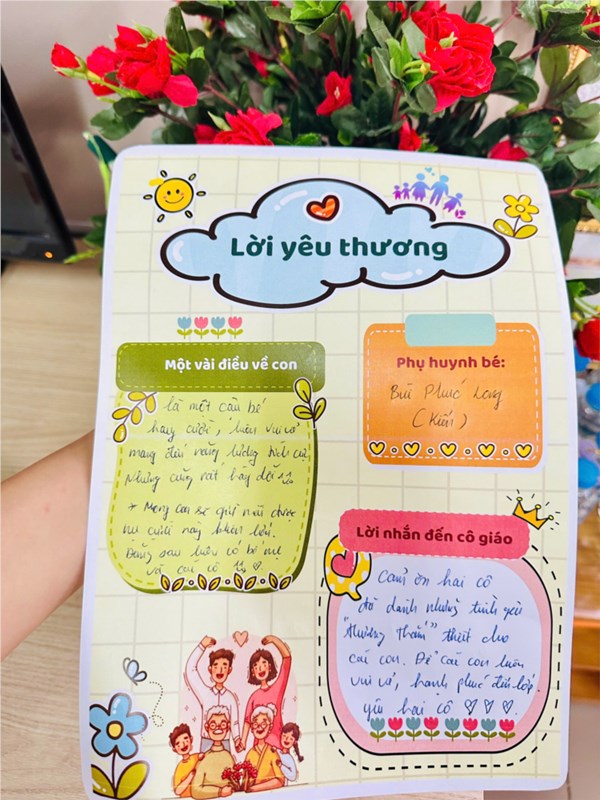 Lời yêu thương
Một vài điều về con
là một cậu bé
hay cười, luôn vui vẻ
mang đến năng lượng tích cực
Nhưng cũng rất hay dỗi
* Mong con sẽ giữ mãi được
nụ cười này khi lớn.
Đằng sau luôn có bố mẹ
và các cô
Phụ huynh bé:
Bùi Phúc Long
(Kiến)
Lời nhắn đến cô giáo
Cảm ơn hai cô
đã dành những tình yêu
"thương thân" thiết cho
các con. Để các con luôn
vui vẻ, hạnh phúc đến lớp.
yêu hai cô